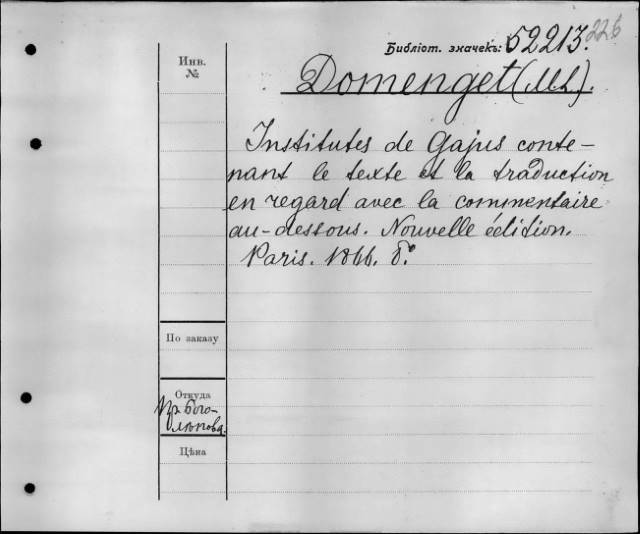 226
Библіот. значекъ: 52213.
Инв.
№
Domenget (M. L.).
Institutes de Gajus conte-
nant le texte et la traduction
en regard avec la commentaire
au-dessous. Nouvelle édition.
Paris. 1866. 8°.
По заказу
Откуда
Пр. Бого-
лѣпова.
Цѣна